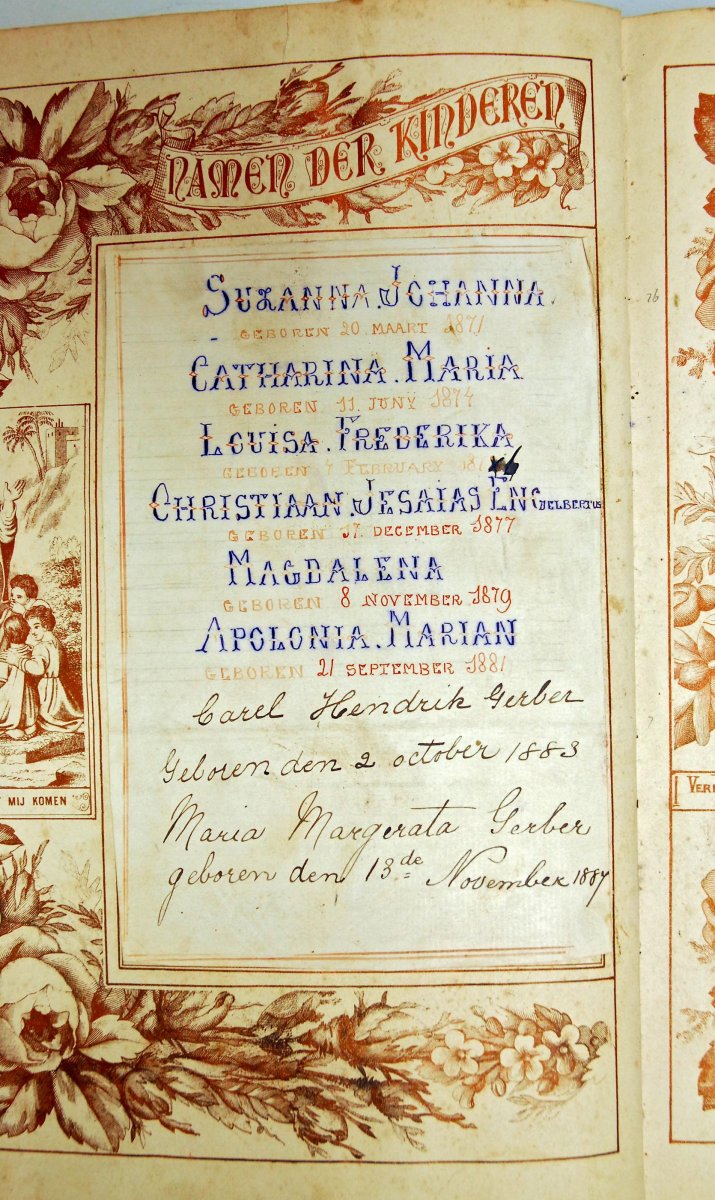 NAMEN DER KINDEREN
SUZANNA. JOHANNA.
GEBOREN 20. MAART 1871
CATHARINA. MARIA
GEBOREN 11. JUNY 1874
LOUISA. FREDERIKA
GEBOREN FEBRUARY 1876
CHRISTIAAN. JESAIAS ENGELBERTUS
GEBOREN 17. DECEMBER 1877
MAGDALENA
GEBOREN 8 NOVEMBER 1879
APOLONIA. MARIAN
GEBOREN 21 SEPTEMBER 1881
Carel Hendrik Gerber
Geboren den 2 october 1883
Maria Margerata Gerber
geboren den 13de November 1887
MIJ KOMEN
76